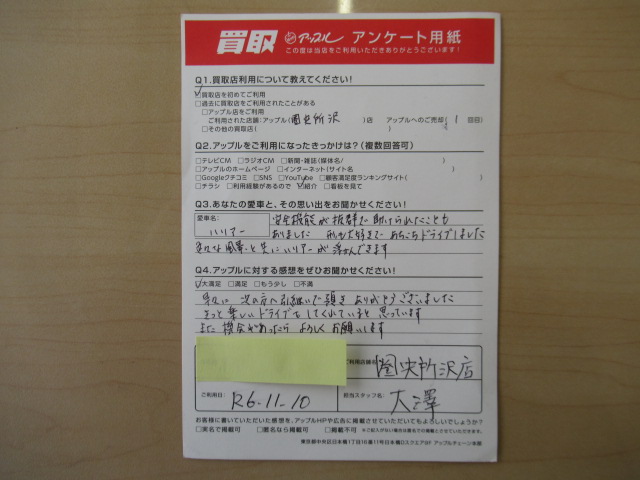 買取 アップル アンケート用紙
この度は当店をご利用いただきありがとうございます!
Q1.買取店利用について教えてください!
☑買取店を初めてご利用
□過去に買取店をご利用されたことがある
□アップル店をご利用
ご利用された店舗:アップル(圏央所沢)店 アップルへのご売却( 1 回目)
□その他の買取店( )
Q2.アップルをご利用になったきっかけは?(複数回答可)
□テレビCM □ラジオCM □新聞・雑誌(媒体名/ )
□アップルのホームページ □インターネット(サイト名 )
□Googleクチコミ □SNS □YouTube □顧客満足度ランキングサイト( )
□チラシ □利用経験があるので ☑紹介 □看板を見て
Q3.あなたの愛車と、その思い出をお聞かせください!
愛車名:
ハリアー
安全機能が抜群で助けられたことも
ありました 形も大好きで あちこちドライブしました
色々な風景と共にハリアーが浮かんできます
Q4.アップルに対する感想をぜひお聞かせください!
☑大満足 □満足 □もう少し □不満
次の方へ引継いで頂き ありがとうございました
きっと楽しいドライブをしてくれていると思っています
また機会があったら よろしくお願いします
ご利用店舗名:
圏央所沢店
ご利用日:
R6.11.10
担当スタッフ名:
大澤
お客様に書いていただいた感想を、アップルHPや広告に掲載させていただいてもよろしいでしょうか?
□実名で掲載可 □匿名なら掲載可 □掲載不可 ※ご記入がない場合は匿名での掲載とさせていただきます。
東京都中央区日本橋1丁目16番11号日本橋Dスクエア8F アップルチェーン本部